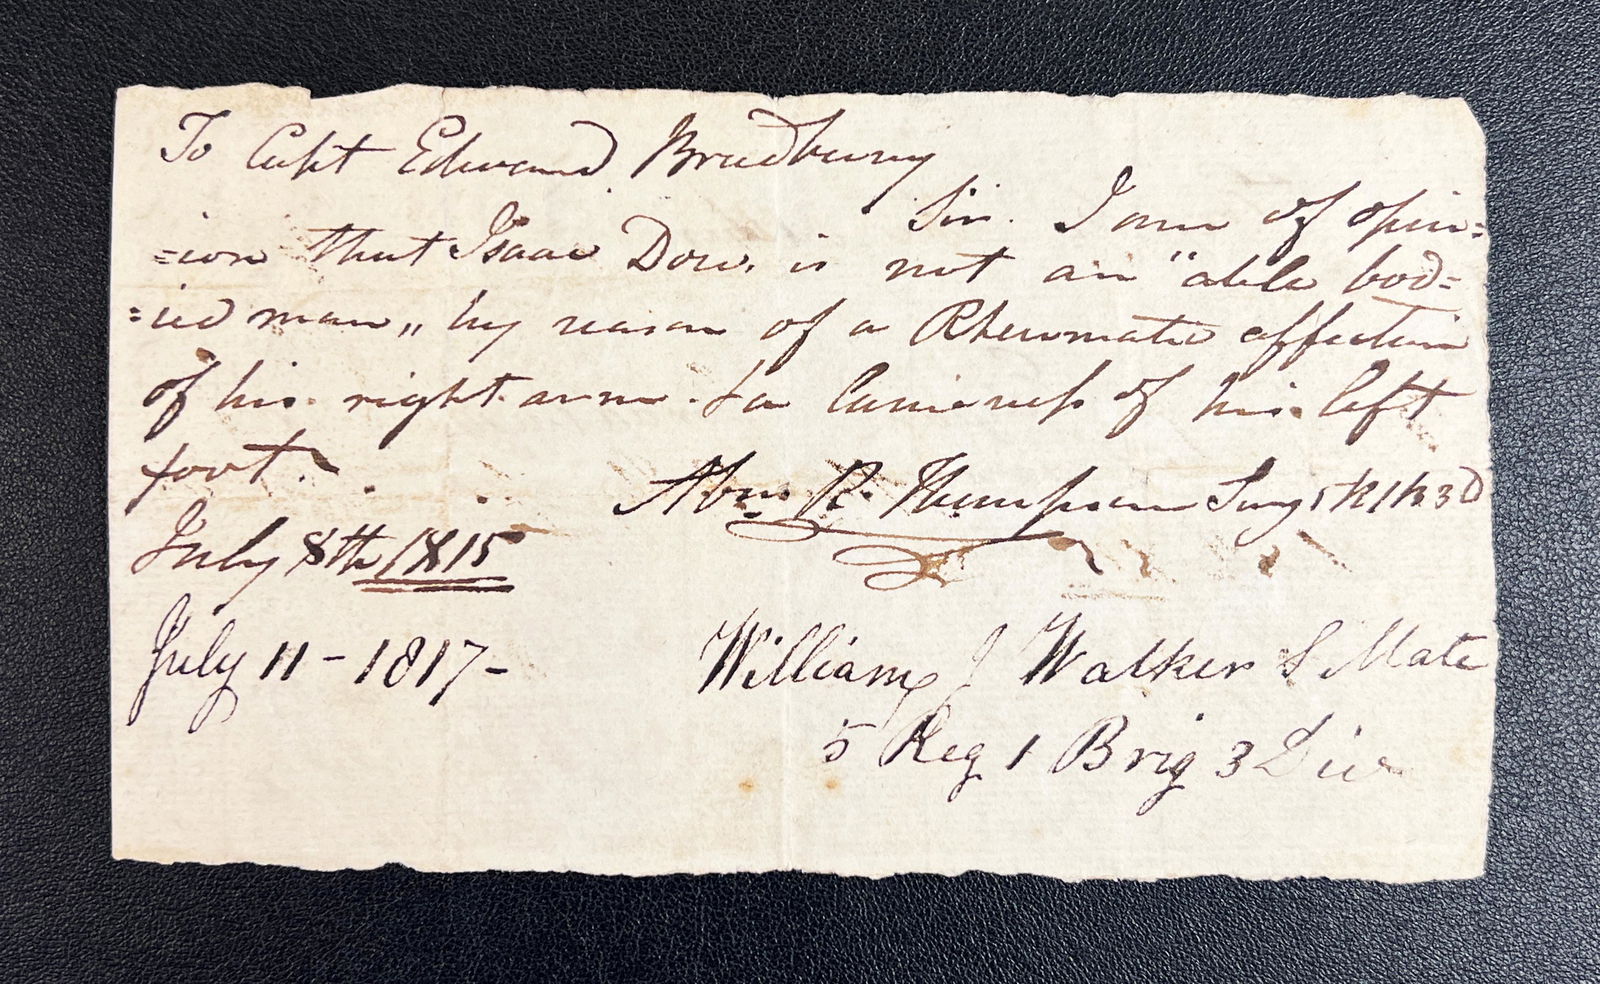 To Capt Edward Bradbury
Sir. I am of opin=
=ion that Isaac Dow. is not an "able bod=
=ied man,, by reason of a Rheumatic affection
of his right arm. & a lameness of his left
foot.
Abm. R. Thompson Surg 5 R 1 B 3 D
July 8th 1815
July 11 - 1817 -
William J Walker S Mate
5 Reg 1 Brig 3 Div